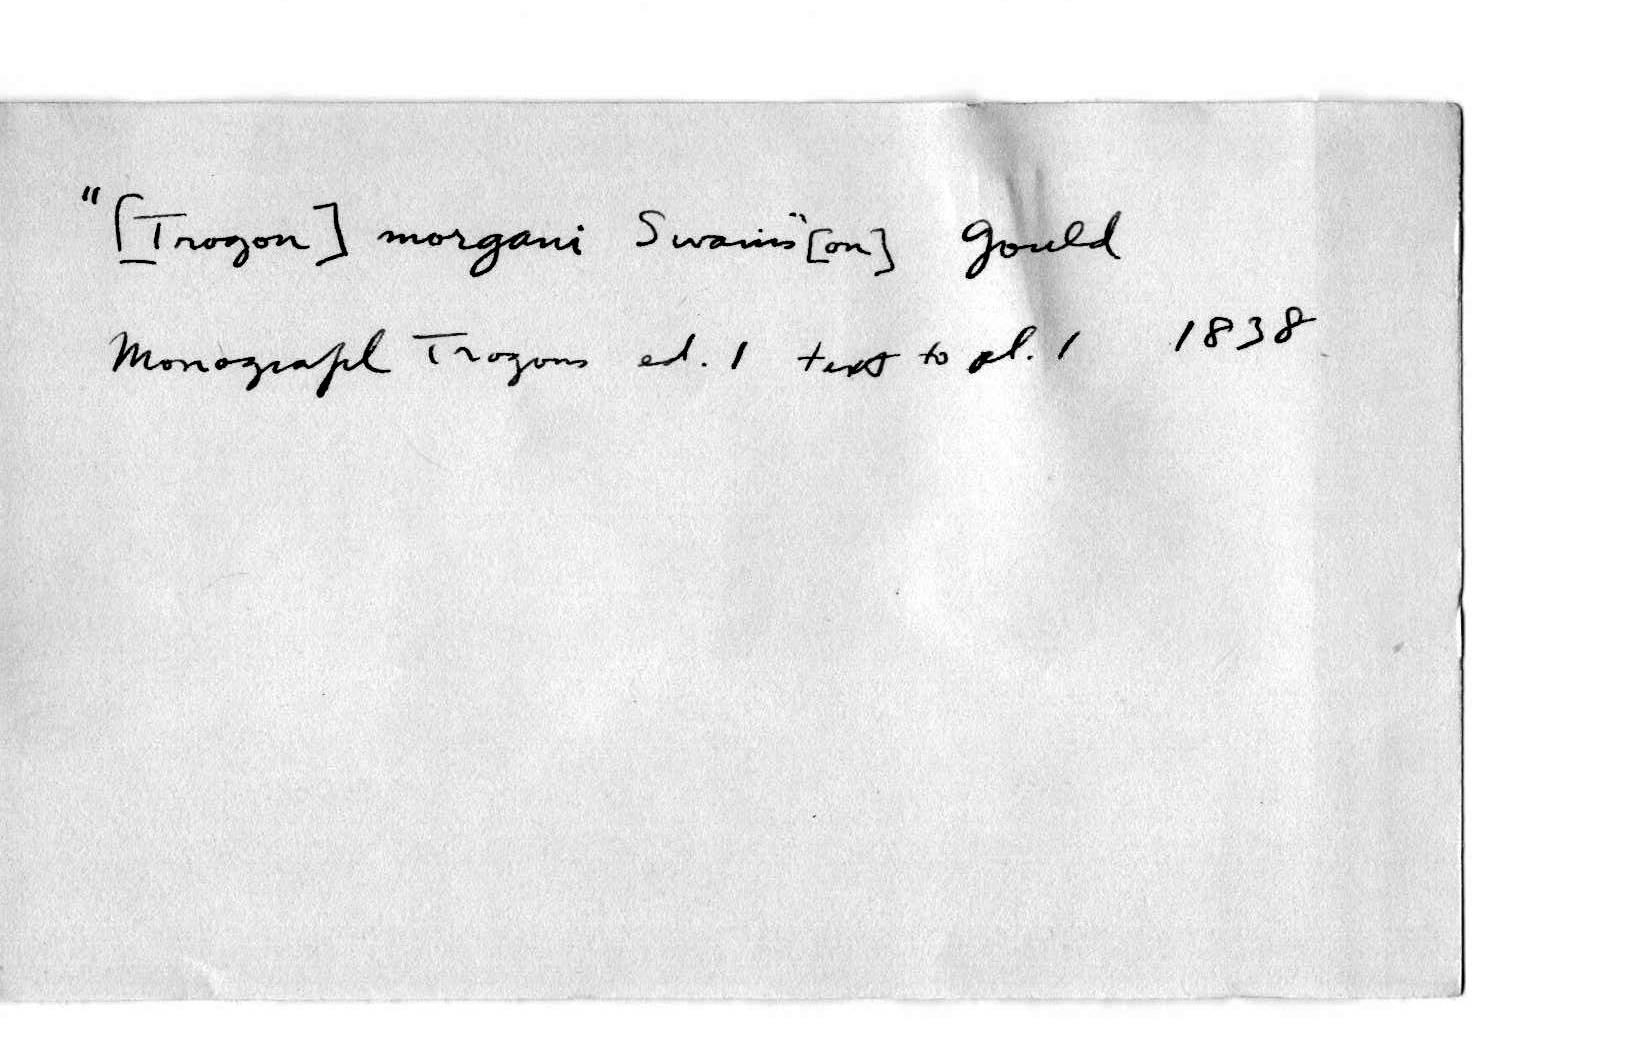 "[Trogon] morgani Swains"[on] Gould
Monograph Trogons ed. 1 text to pl. 1 1838